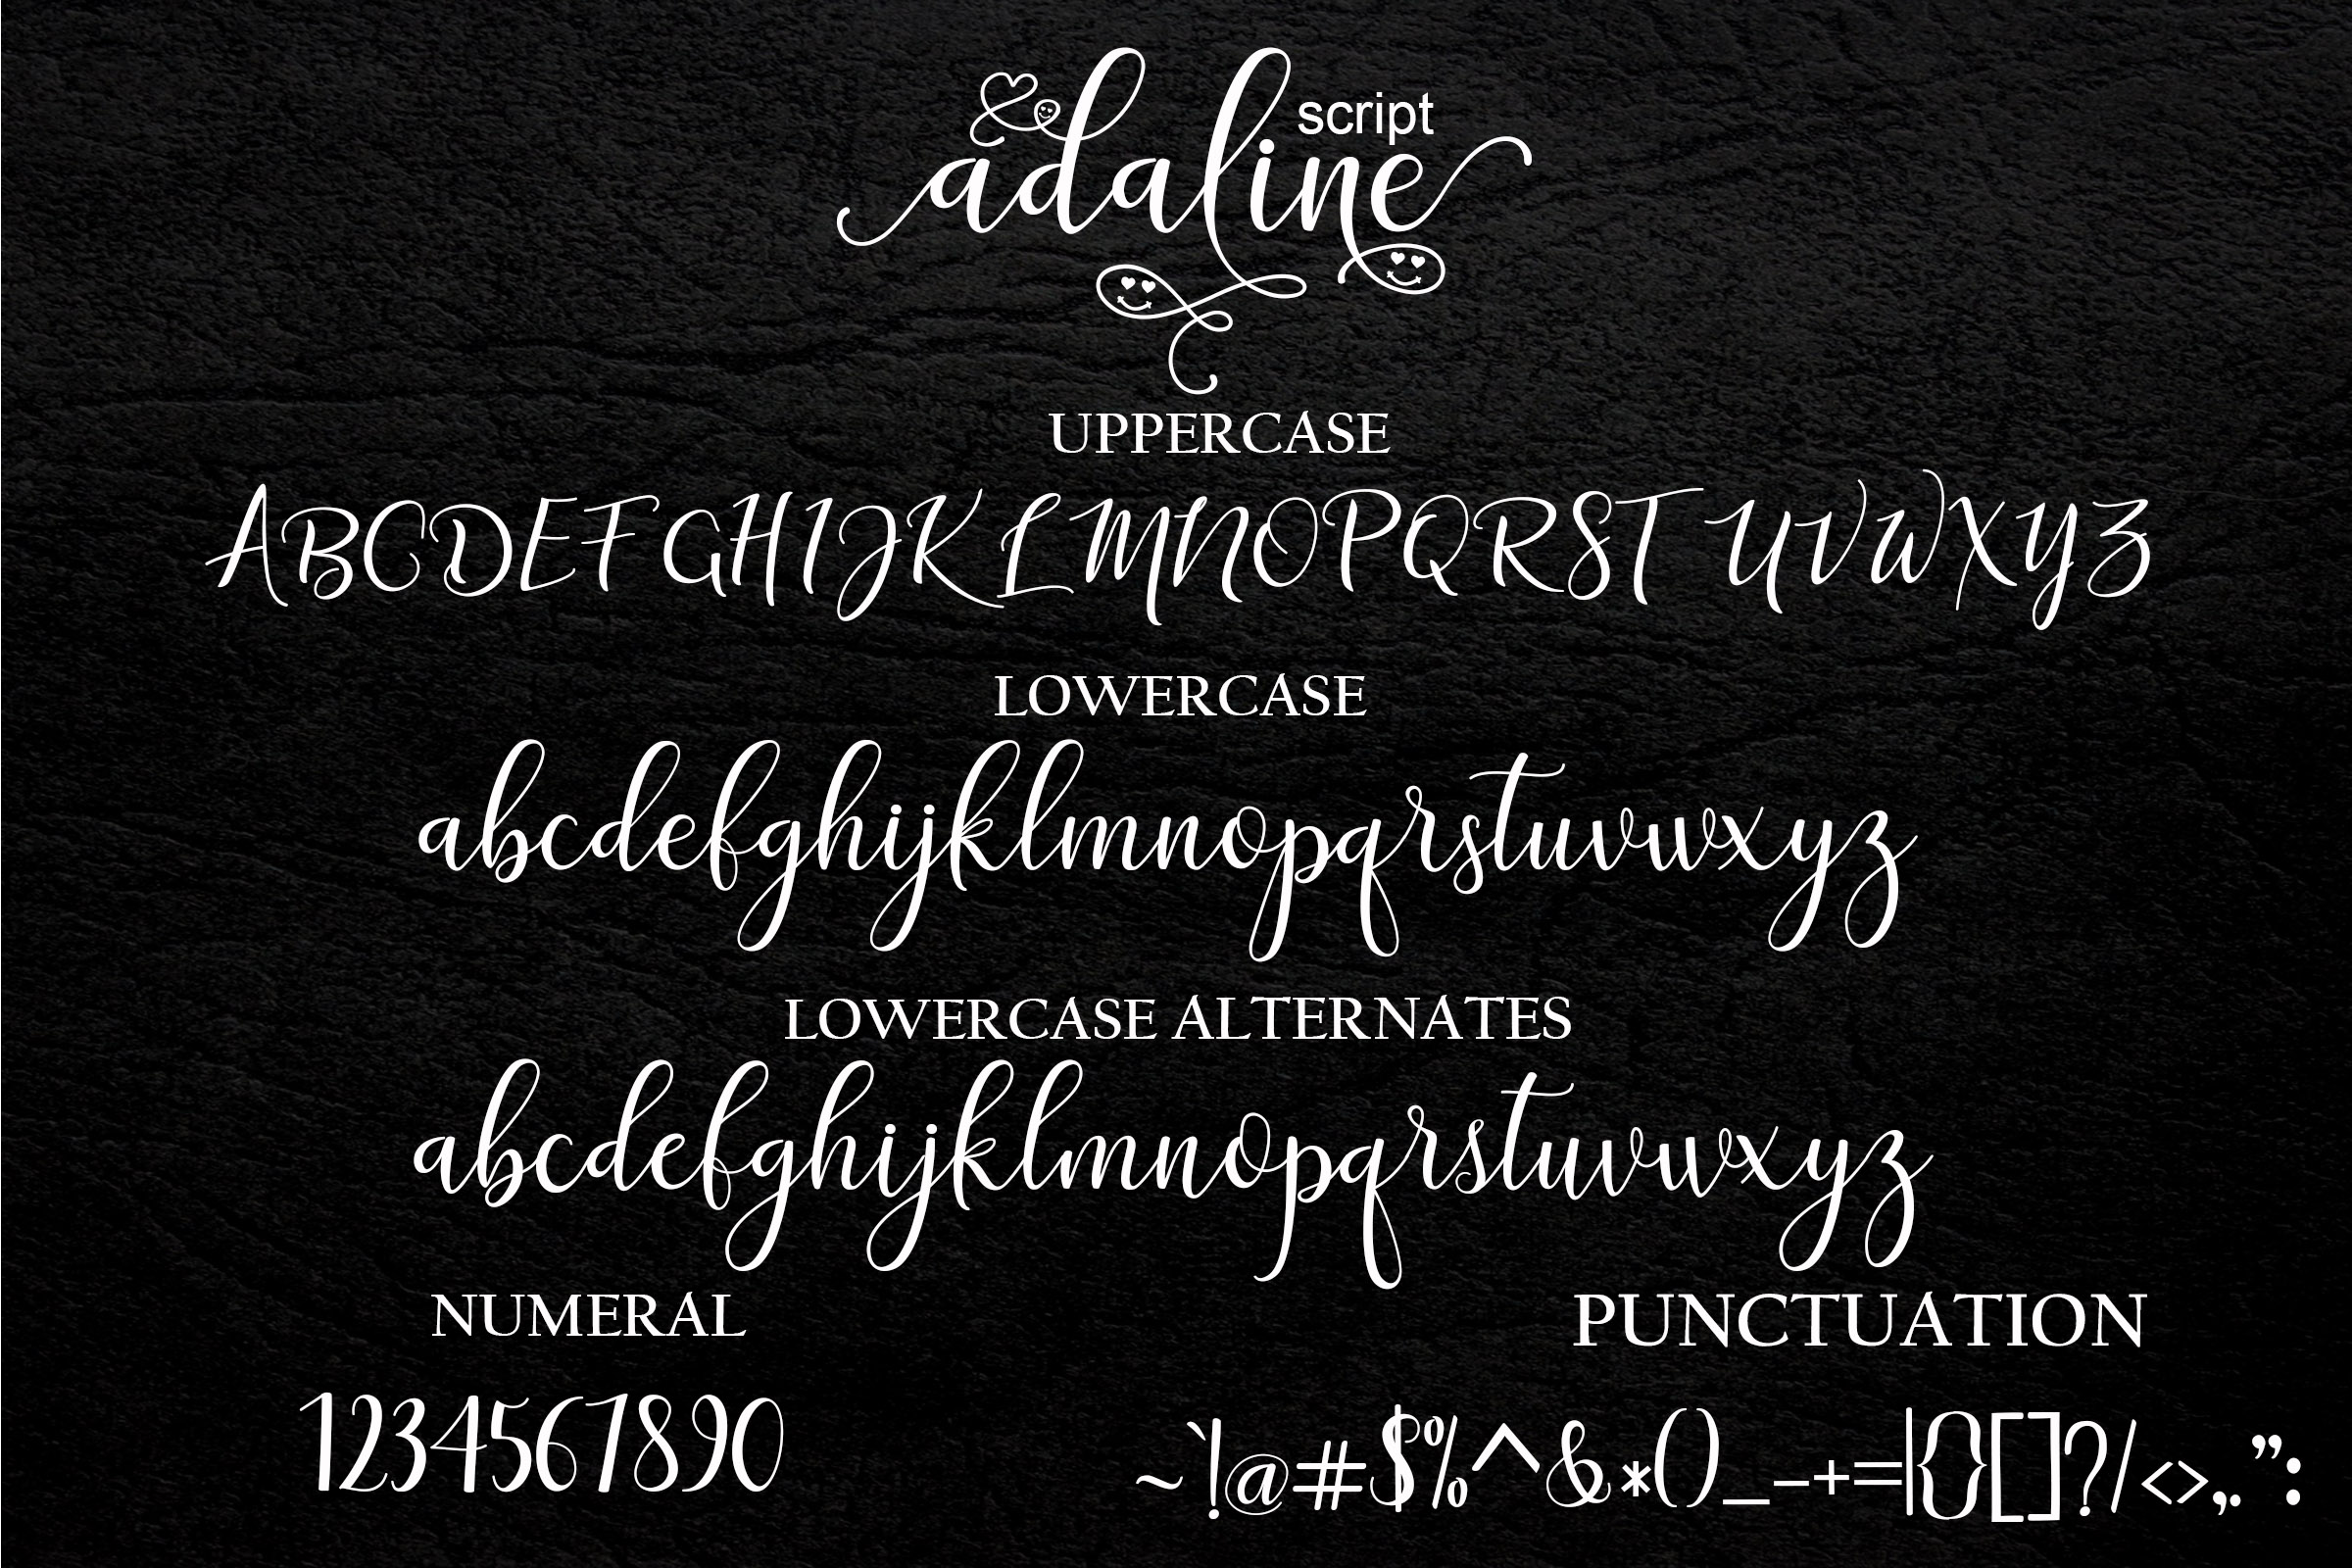 script
adaline
UPPERCASE
ABCDEFGHIJKLMNOPQRSTUVWXYZ
LOWERCASE
abcdefghijklmnopqrstuvwxyz
LOWERCASE ALTERNATES
abcdefghijklmnopqrstuvwxyz
NUMERAL
PUNCTUATION
1234567890
~`!@#$%^&*()_-+=|{}[]?/<>,.”: